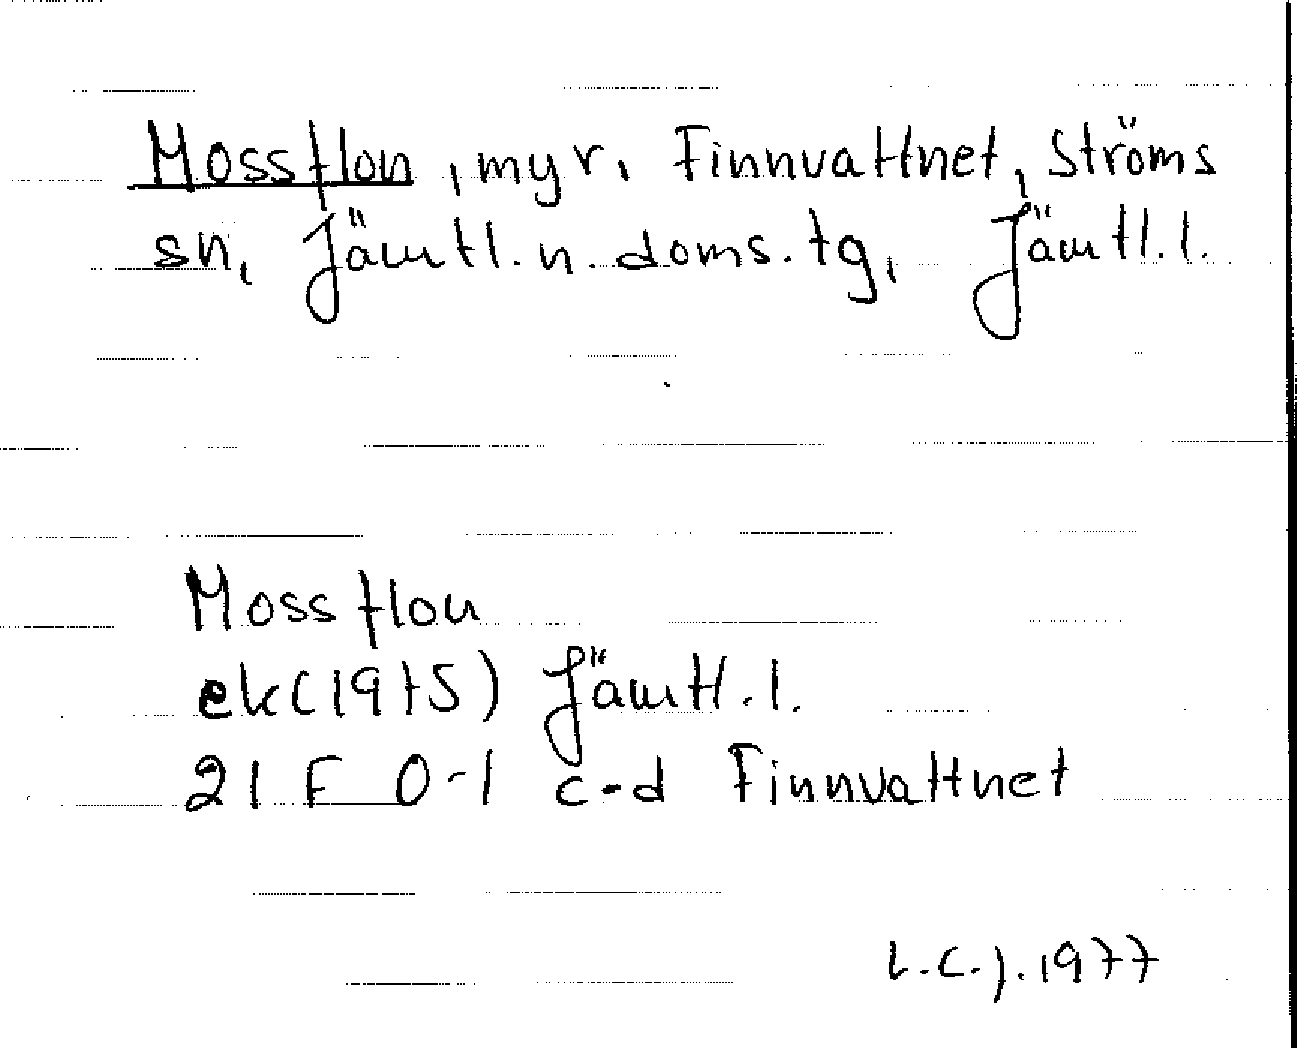 Mossflon, myr, Finnvattnet, Ströms
sn, Jämtl. n. doms. tg, Jämtl. l.
Mossflon
ek (1975) Jämtl. l.
21 F 0-1 c-d Finnvattnet
L.C.J. 1977